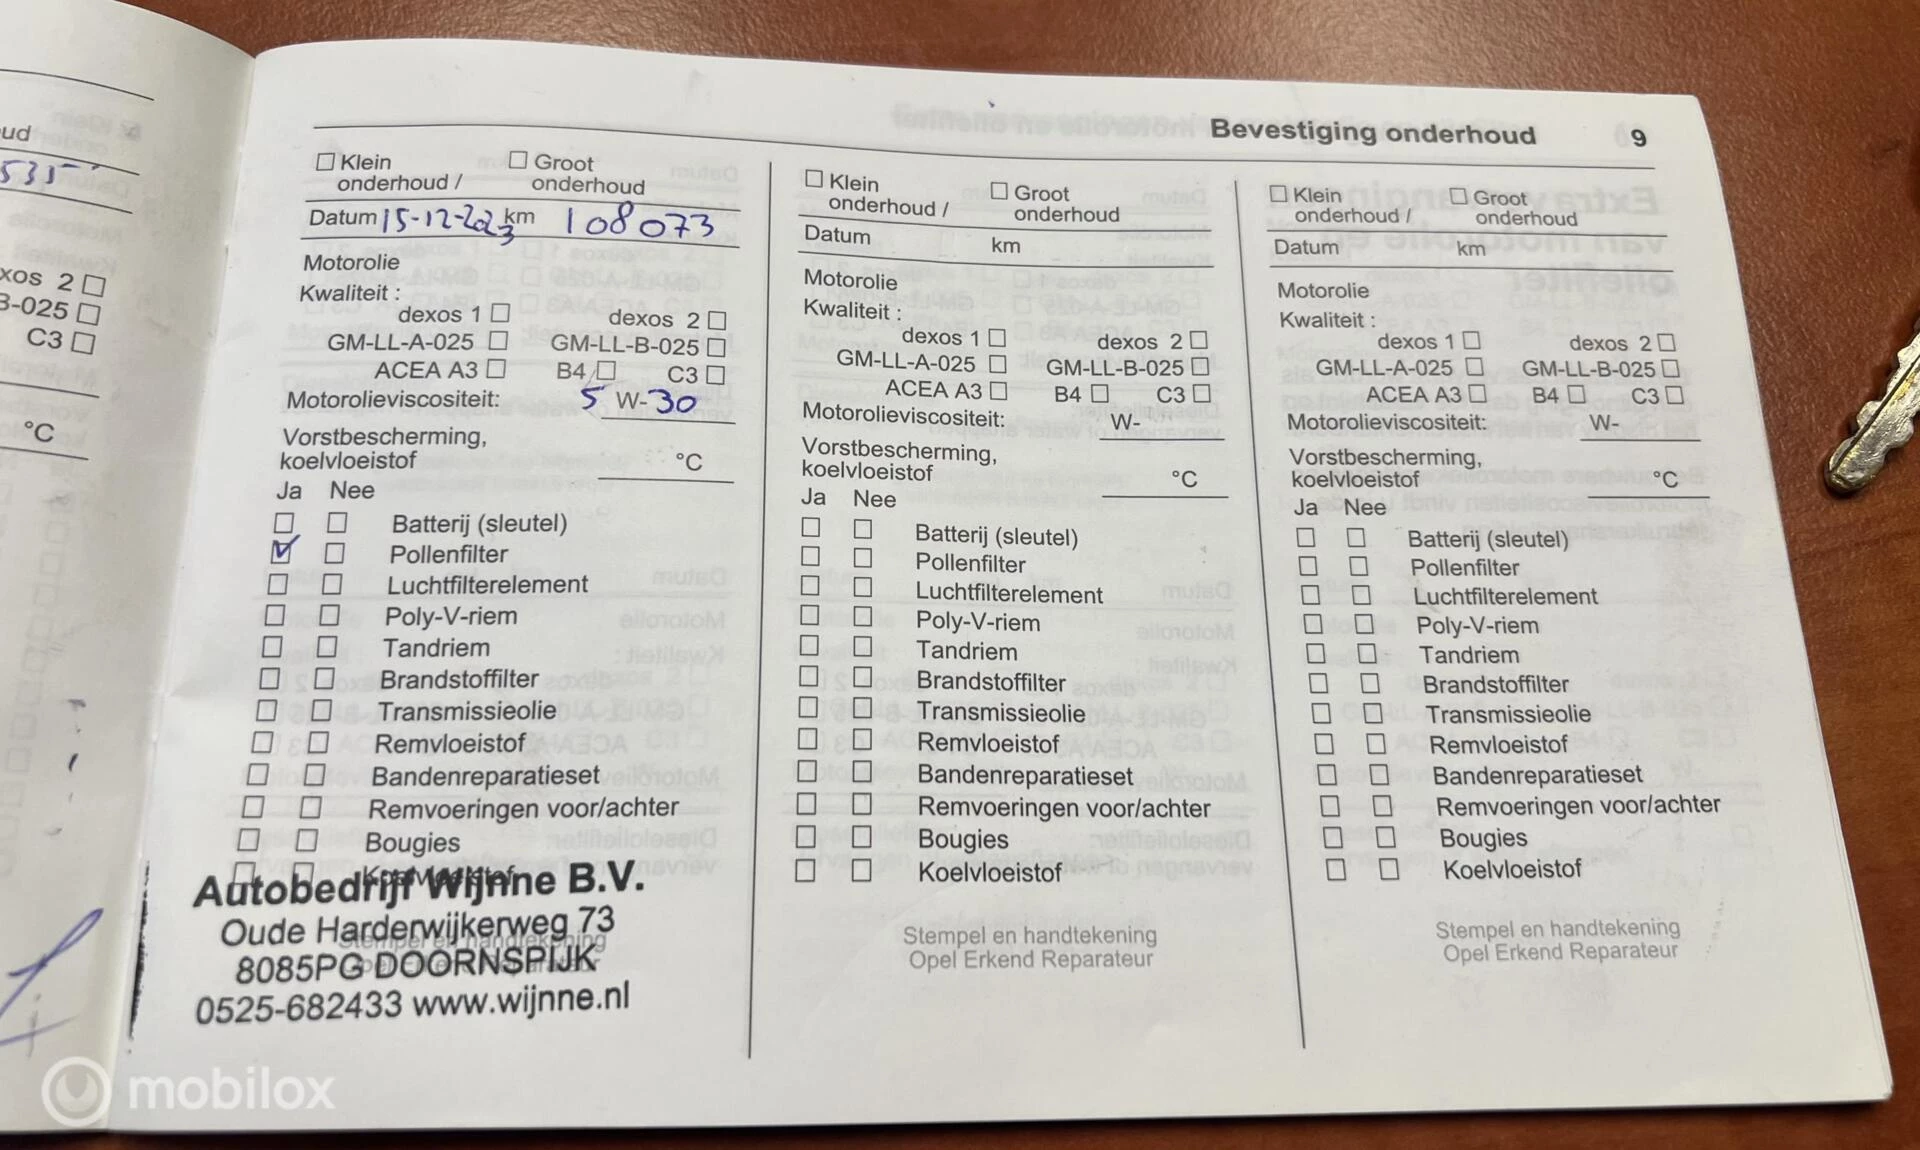 ud
535
xos 2
B-025
C3
°C
Bevestiging onderhoud 9
Klein onderhoud / Groot onderhoud
Datum 15-12-2023 km 108073
Motorolie
Kwaliteit :
dexos 1 dexos 2
GM-LL-A-025 GM-LL-B-025
ACEA A3 B4 C3
Motorolieviscositeit: 5 W-30
Vorstbescherming,
koelvloeistof °C
Ja Nee
Batterij (sleutel)
Pollenfilter
Luchtfilterelement
Poly-V-riem
Tandriem
Brandstoffilter
Transmissieolie
Remvloeistof
Bandenreparatieset
Remvoeringen voor/achter
Bougies
Koelvloeistof
Autobedrijf Wijnne B.V.
Oude Harderwijkerweg 73
Stempel en handtekening
8085PG DOORNSPIJK
Opel Erkend Reparateur
0525-682433 www.wijnne.nl
Klein onderhoud / Groot onderhoud
Datum km
Motorolie
Kwaliteit :
dexos 1 dexos 2
GM-LL-A-025 GM-LL-B-025
ACEA A3 B4 C3
Motorolieviscositeit: W-
Vorstbescherming,
koelvloeistof °C
Ja Nee
Batterij (sleutel)
Pollenfilter
Luchtfilterelement
Poly-V-riem
Tandriem
Brandstoffilter
Transmissieolie
Remvloeistof
Bandenreparatieset
Remvoeringen voor/achter
Bougies
Koelvloeistof
Stempel en handtekening
Opel Erkend Reparateur
Klein onderhoud / Groot onderhoud
Datum km
Motorolie
Kwaliteit :
dexos 1 dexos 2
GM-LL-A-025 GM-LL-B-025
ACEA A3 B4 C3
Motorolieviscositeit: W-
Vorstbescherming,
koelvloeistof °C
Ja Nee
Batterij (sleutel)
Pollenfilter
Luchtfilterelement
Poly-V-riem
Tandriem
Brandstoffilter
Transmissieolie
Remvloeistof
Bandenreparatieset
Remvoeringen voor/achter
Bougies
Koelvloeistof
Stempel en handtekening
Opel Erkend Reparateur
mobilox